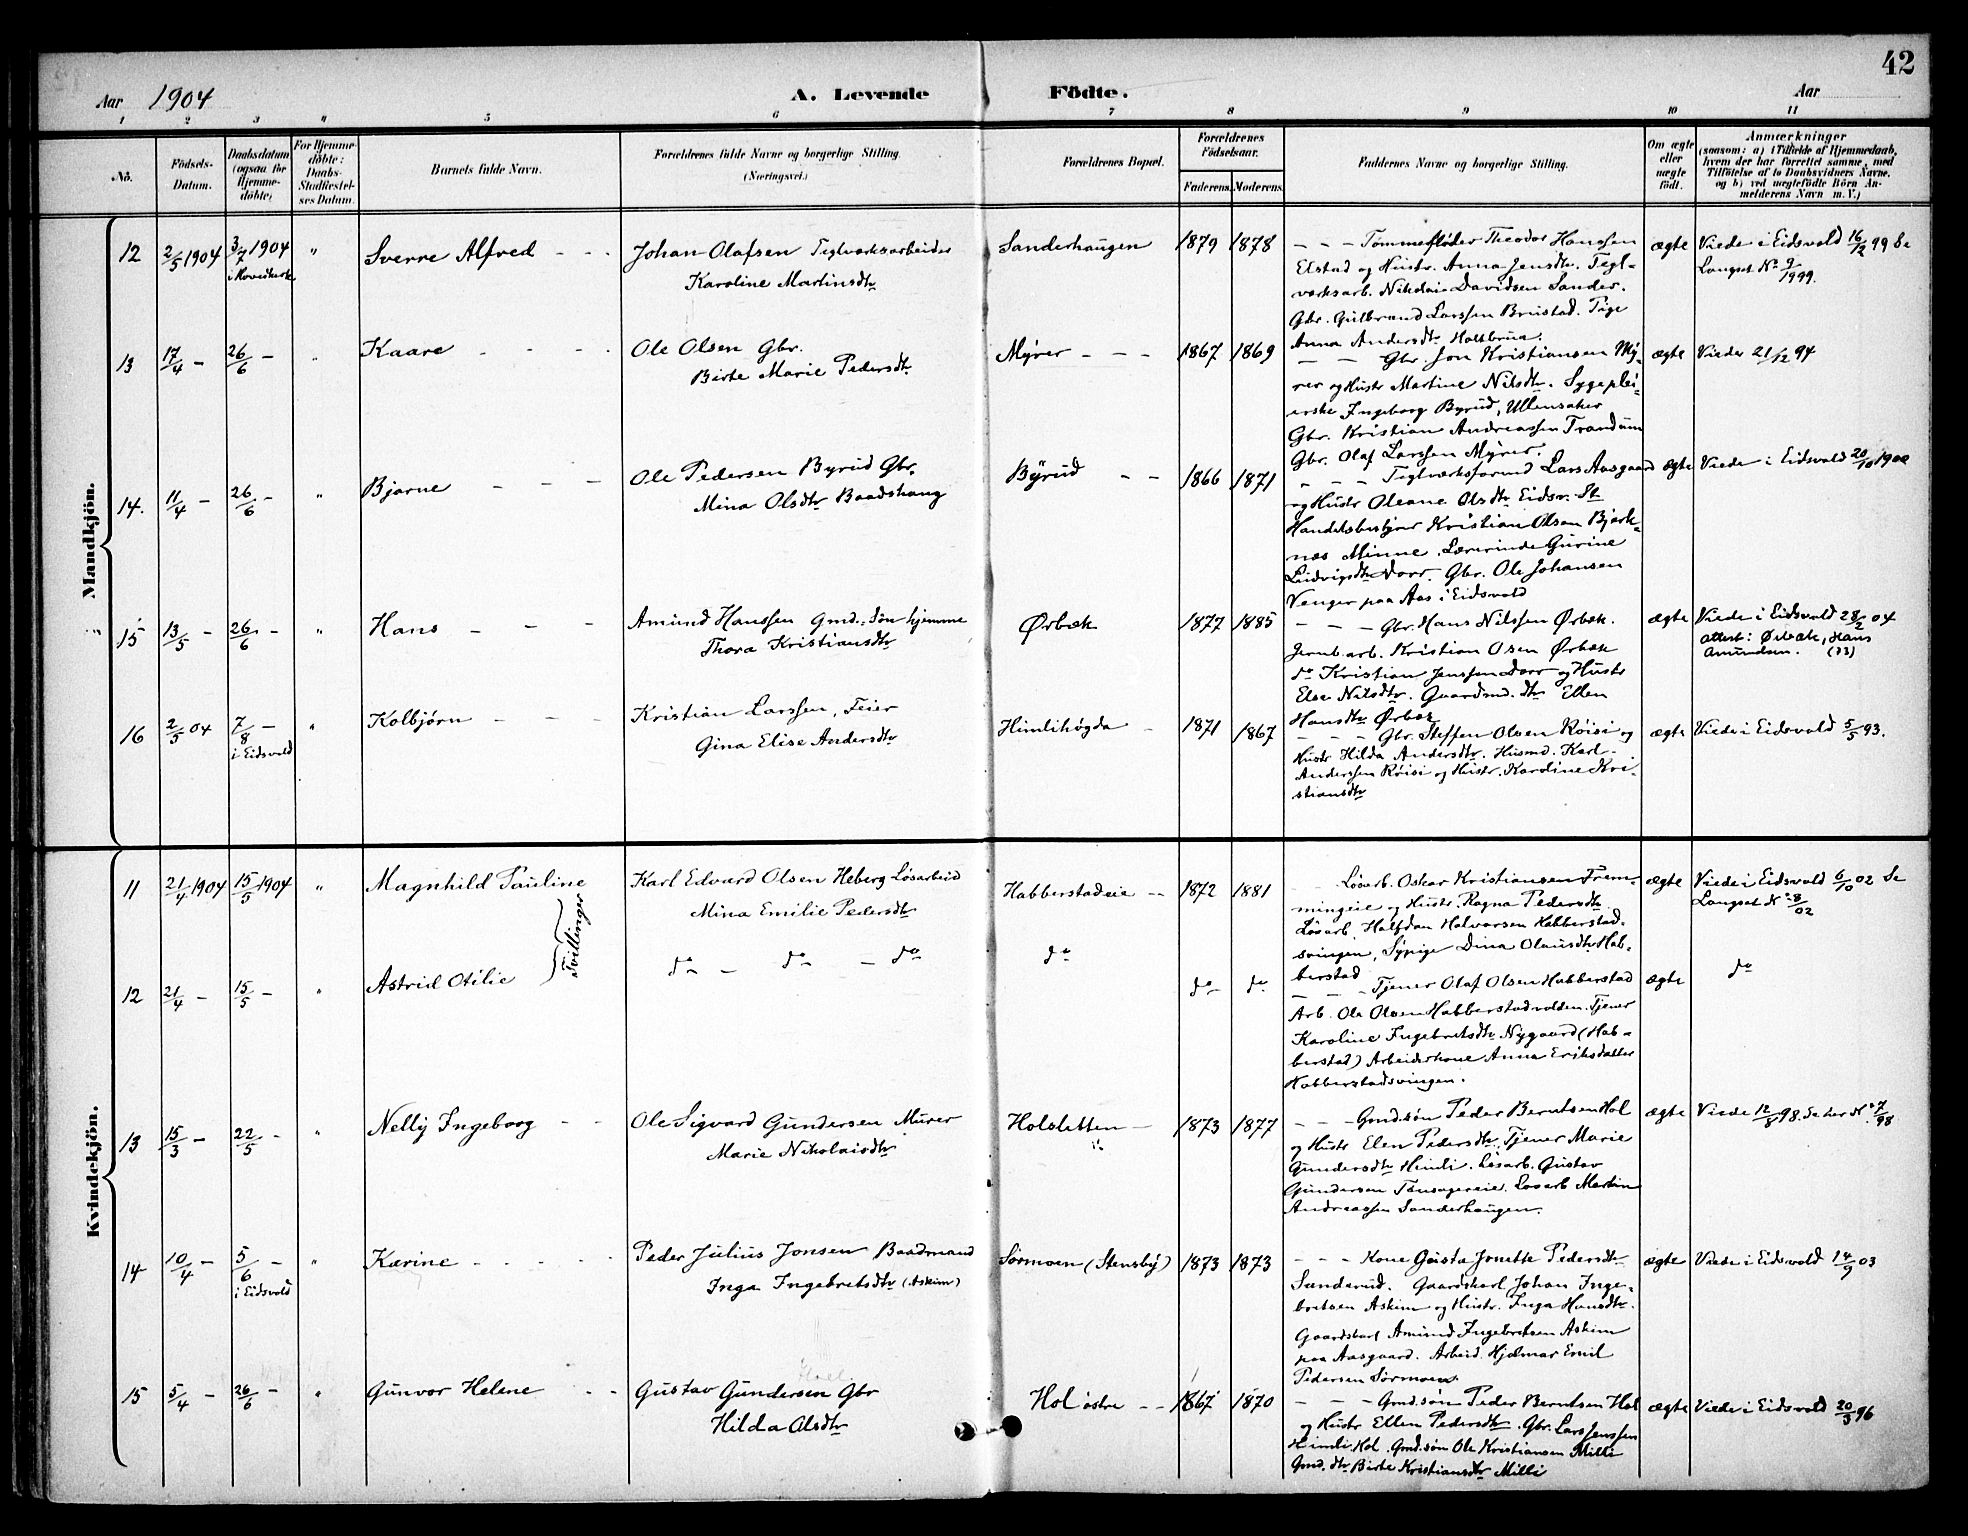 42
Aar 1904 A. Levende Födte. Aar
1 2 3 4 5 6 7 8 9 10 11
No.
Födsels-Datum.
Daabsdatum (ogsaa for Hjemme-döbte)
For Hjemme-döbte: Daabs-Stadfæstel-ses Datum.
Barnets fulde Navn.
Forældrenes fulde Navne og borgerlige Stilling. (Næringsvei.)
Forældrenes Bopæl.
Forældrenes Födselsaar.
Faderens. Moderens.
Faddernes Navne og borgerlige Stilling.
Om ægte eller uægte födt.
Anmærkninger
(saasom: a) i Tilfælde af Hjemmedaab,
hvem der har forrettet samme, med
Tilföielse af to Daabsvidners Navne,
og b) ved uægtefödte Börn An-
melderens Navn m. V.)
Mandkjön.
12 2/5 1904 3/7 1904 " Sverre Alfred - - Johan Olafsen Teglverksarbeider Sanderhaugen 1879 1878 - - - Tømmerfløder Theodor Hanssen ægte Viede i Eidsvold 16/12 99 Se
i Hovedkirke Karoline Martinsdtr Elstad og Hustr. Anna Jensdtr. Tegl- Langset No 9/1999.
verksarb. Nikolai Davidsen Sander.
Gbr. Gulbrand Larssen Brustad. Pige
Anna Andersdtr Holtbrua.
13 17/4 - 26/6 - " Kaare - - - Ole Olsen Gbr. Myrer - - - 1867 1869 - - Gbr. Jon Kristiansen My- ægte Viedes 21/12 94
Birte Marie Pedersdtr. rer og Hustr Martine Nilsdtr. Sygeplei-
erske Ingeborg Byrud, Ullensaker
Gbr. Kristian Andreassen Trandum
Gbr. Olaf Larssen Myrer.
14. 11/4 - 26/6 - " Bjarne - - - Ole Pedersen Byrud Gbr. Byrud - - 1866 1871 - - - Teglverksformd Lars Aasgaard ægte Viede i Eidsvold 20/10 1900
Mina Olsdtr Baadshaug og Hustr Oleane Olsdtr Eidsv. St
Handelsbestyrer Kristian Olsen Bjerk-
nes Minne. Lærerinde Gurine
Ludvigsdtr Dorr. Gbr. Ole Johansen
Venger paa Aas i Eidsvold
15 13/5 - 26/6 - " Hans - - - Amund Hanssen Gmd.søn hjemme Ørbæk 1877 1885 - - - Gbr. Hans Nilssen Ørbæk. ægte Viede i Eidsvold 28/2 04
Thora Kristiansdtr Jernb.arb. Kristian Olsen Ørbæk attest: Ørbæk, Hans
do Kristian Jenssen Dorr og Hustr Amundsen. (73)
Else Nilsdtr. Gaardmd. dtr Ellen
Hansdtr Ørbæk
16 2/5 04 7/8 - " Kolbjørn - - - Kristian Larssen, Feier Himlihøgda - 1871 1867 - - - Gbr. Steffen Olsen Røisi og ægte Viede i Eidsvold 5/5 93.
i Eidsvold Gina Elise Andersdtr Hustr Hilda Andersdtr. Husmd. Karl
Anderssen Røisi og Hustr. Karoline Kri-
stiansdtr
Kvindekjön.
11 21/4 1904 15/5 1904 " Magnhild Pauline Karl Edvard Olsen Heberg Løsarbeid Habberstadeie - 1872 1881 - Løsarb. Oskar Kristiansen Frem- ægte Viede i Eidsvold 6/10 02 Se
Tvillinger Mina Emilie Pedersdtr mingeie og Hustr. Ragna Pedersdtr Langset No 8/02
Løsarb. Halfdan Halvorsen Habberstad-
svingen, Sypige Dina Olausdtr Hab-
berstad
12 21/4 - 15/5 - " Astrid Otilie do - do - do do do do - - - Tjener Olaf Olsen Habberstad ægte do
Arb. Ole Olsen Habberstadvolden. Tjener
Karoline Ingebretsdtr. Nygaard (Hab-
berstad) Arbeiderkone Anna Eriksdatter
Habberstadsvingen.
13 15/3 - 22/5 - " Nelly Ingeborg - - Ole Sigvard Gundersen Murer Holsletten - 1873 1877 - - - Gmd.søn Peder Berntsen Hol ægte Viede 12/8 98. Se her No 7/98
Marie Nikolaisdtr og Hustr Elen Pedersdtr. Tjener Marie
Gundersdtr Himli. Løsarb. Gustav
Gundersen Tønsagereie. Løsarb Martin
Andreassen Sanderhaugen.
14 10/4 - 5/6 - " Karine - - - - Peder Julius Jonsen Baadmand Sørmoen (Stensby) 1873 1873 - - - Kone Gusta Jonette Pedersdtr ægte Viede i Eidsvold 14/9 03
i Eidsvold Inga Ingebretsdtr (Askim) Sanderud. Gaardskarl Johan Inge-
bretsen Askim og Hustr. Inga Hansdtr.
Gaardskarl Amund Ingebretsen Askim
paa Aasgaard. Arbeid. Hjalmar Emil
Pedersen Sørmoen.
15 5/4 - 26/6 - " Gunvor Helene - - Gustav Gundersen Gbr Hol østre - - 1867 1870 - - - Gmd.søn Peder Berntsen Hol ægte Viede i Eidsvold 20/3 96
Hilda Olsdtr og Hustr Ellen Pedersdtr. Gbr. Lars Jenssen
Himli Hol. Gmd.søn Ole Kristiansen Milli
Gmd.dtr Birte Kristiansdtr Milli